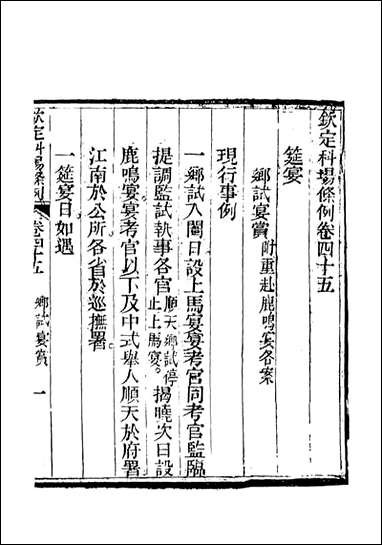 欽定科場條例卷四十五
筵宴
鄉試宴賞附重赴鹿鳴宴各案
現行事例
一鄉試入闈日設上馬宴宴考官同考官監臨
提調監試執事各官順天鄉試停止上馬宴。揭曉次日設
鹿鳴宴宴考官以下及中式舉人順天於府署
江南於公所各省於巡撫署
一筵宴日如遇
欽定科場條例 卷四十五 鄉試宴賞 一